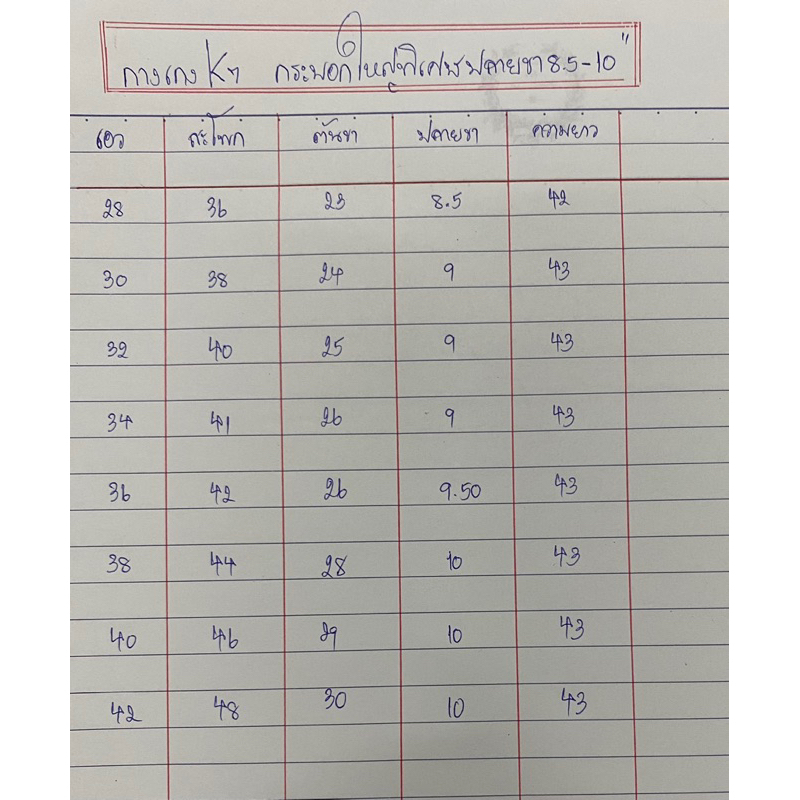 กางเกง Kๆ กระบอกใหญ่พิเศษ ปลายขา 8.5-10"
เอว สะโพก ต้นขา ปลายขา ความยาว
28 36 23 8.5 42
30 38 24 9 43
32 40 25 9 43
34 41 26 9 43
36 42 26 9.50 43
38 44 28 10 43
40 46 29 10 43
42 48 30 10 43